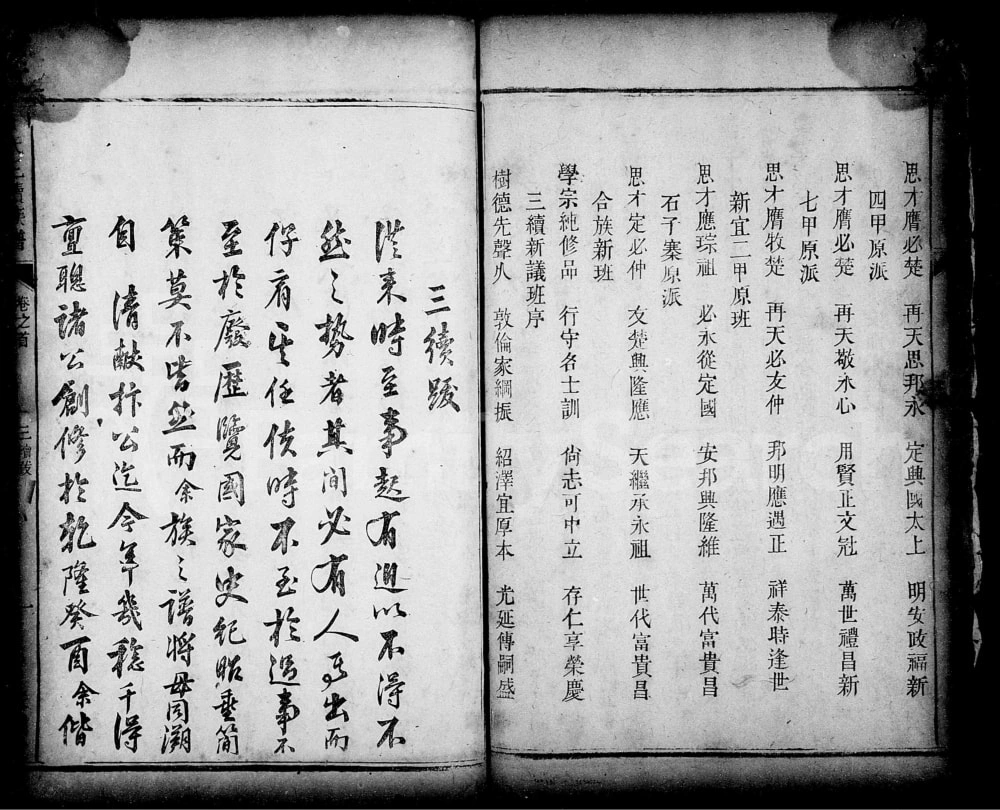 思才膺必楚 再天思邦永 定興國太上 明安政福新
四甲原派
思才膺必楚 再天敬永心 用賢正文冠 萬世禮昌新
七甲原派
思才膺牧楚 再天必友仲 邦明應遇正 祥泰時逢世
新宜二甲原班
思才應琮祖 必永從定國 安邦興隆維 萬代富貴昌
石子寨原派
思才定必仲 文楚興隆應 天繼承永祖 世代富貴昌
合族新班
學宗純修品 行守名士訓 尚志可中立 存仁享榮慶
三續新議班序
樹德先聲久 敦倫家綱振 紹澤宜厚本 光延傳嗣盛
三續跋
從來時至事起有迫以不得不
然之勢者其間必有人焉出而
仔肩其任使時不至於過事不
至於廢歷覽國家史紀昭垂簡
策莫不皆然而余族之譜將毋同溯
自 清獻抃公迄今年幾稔千得
亶聰諸公創修於乾隆癸酉余偕
卷之首